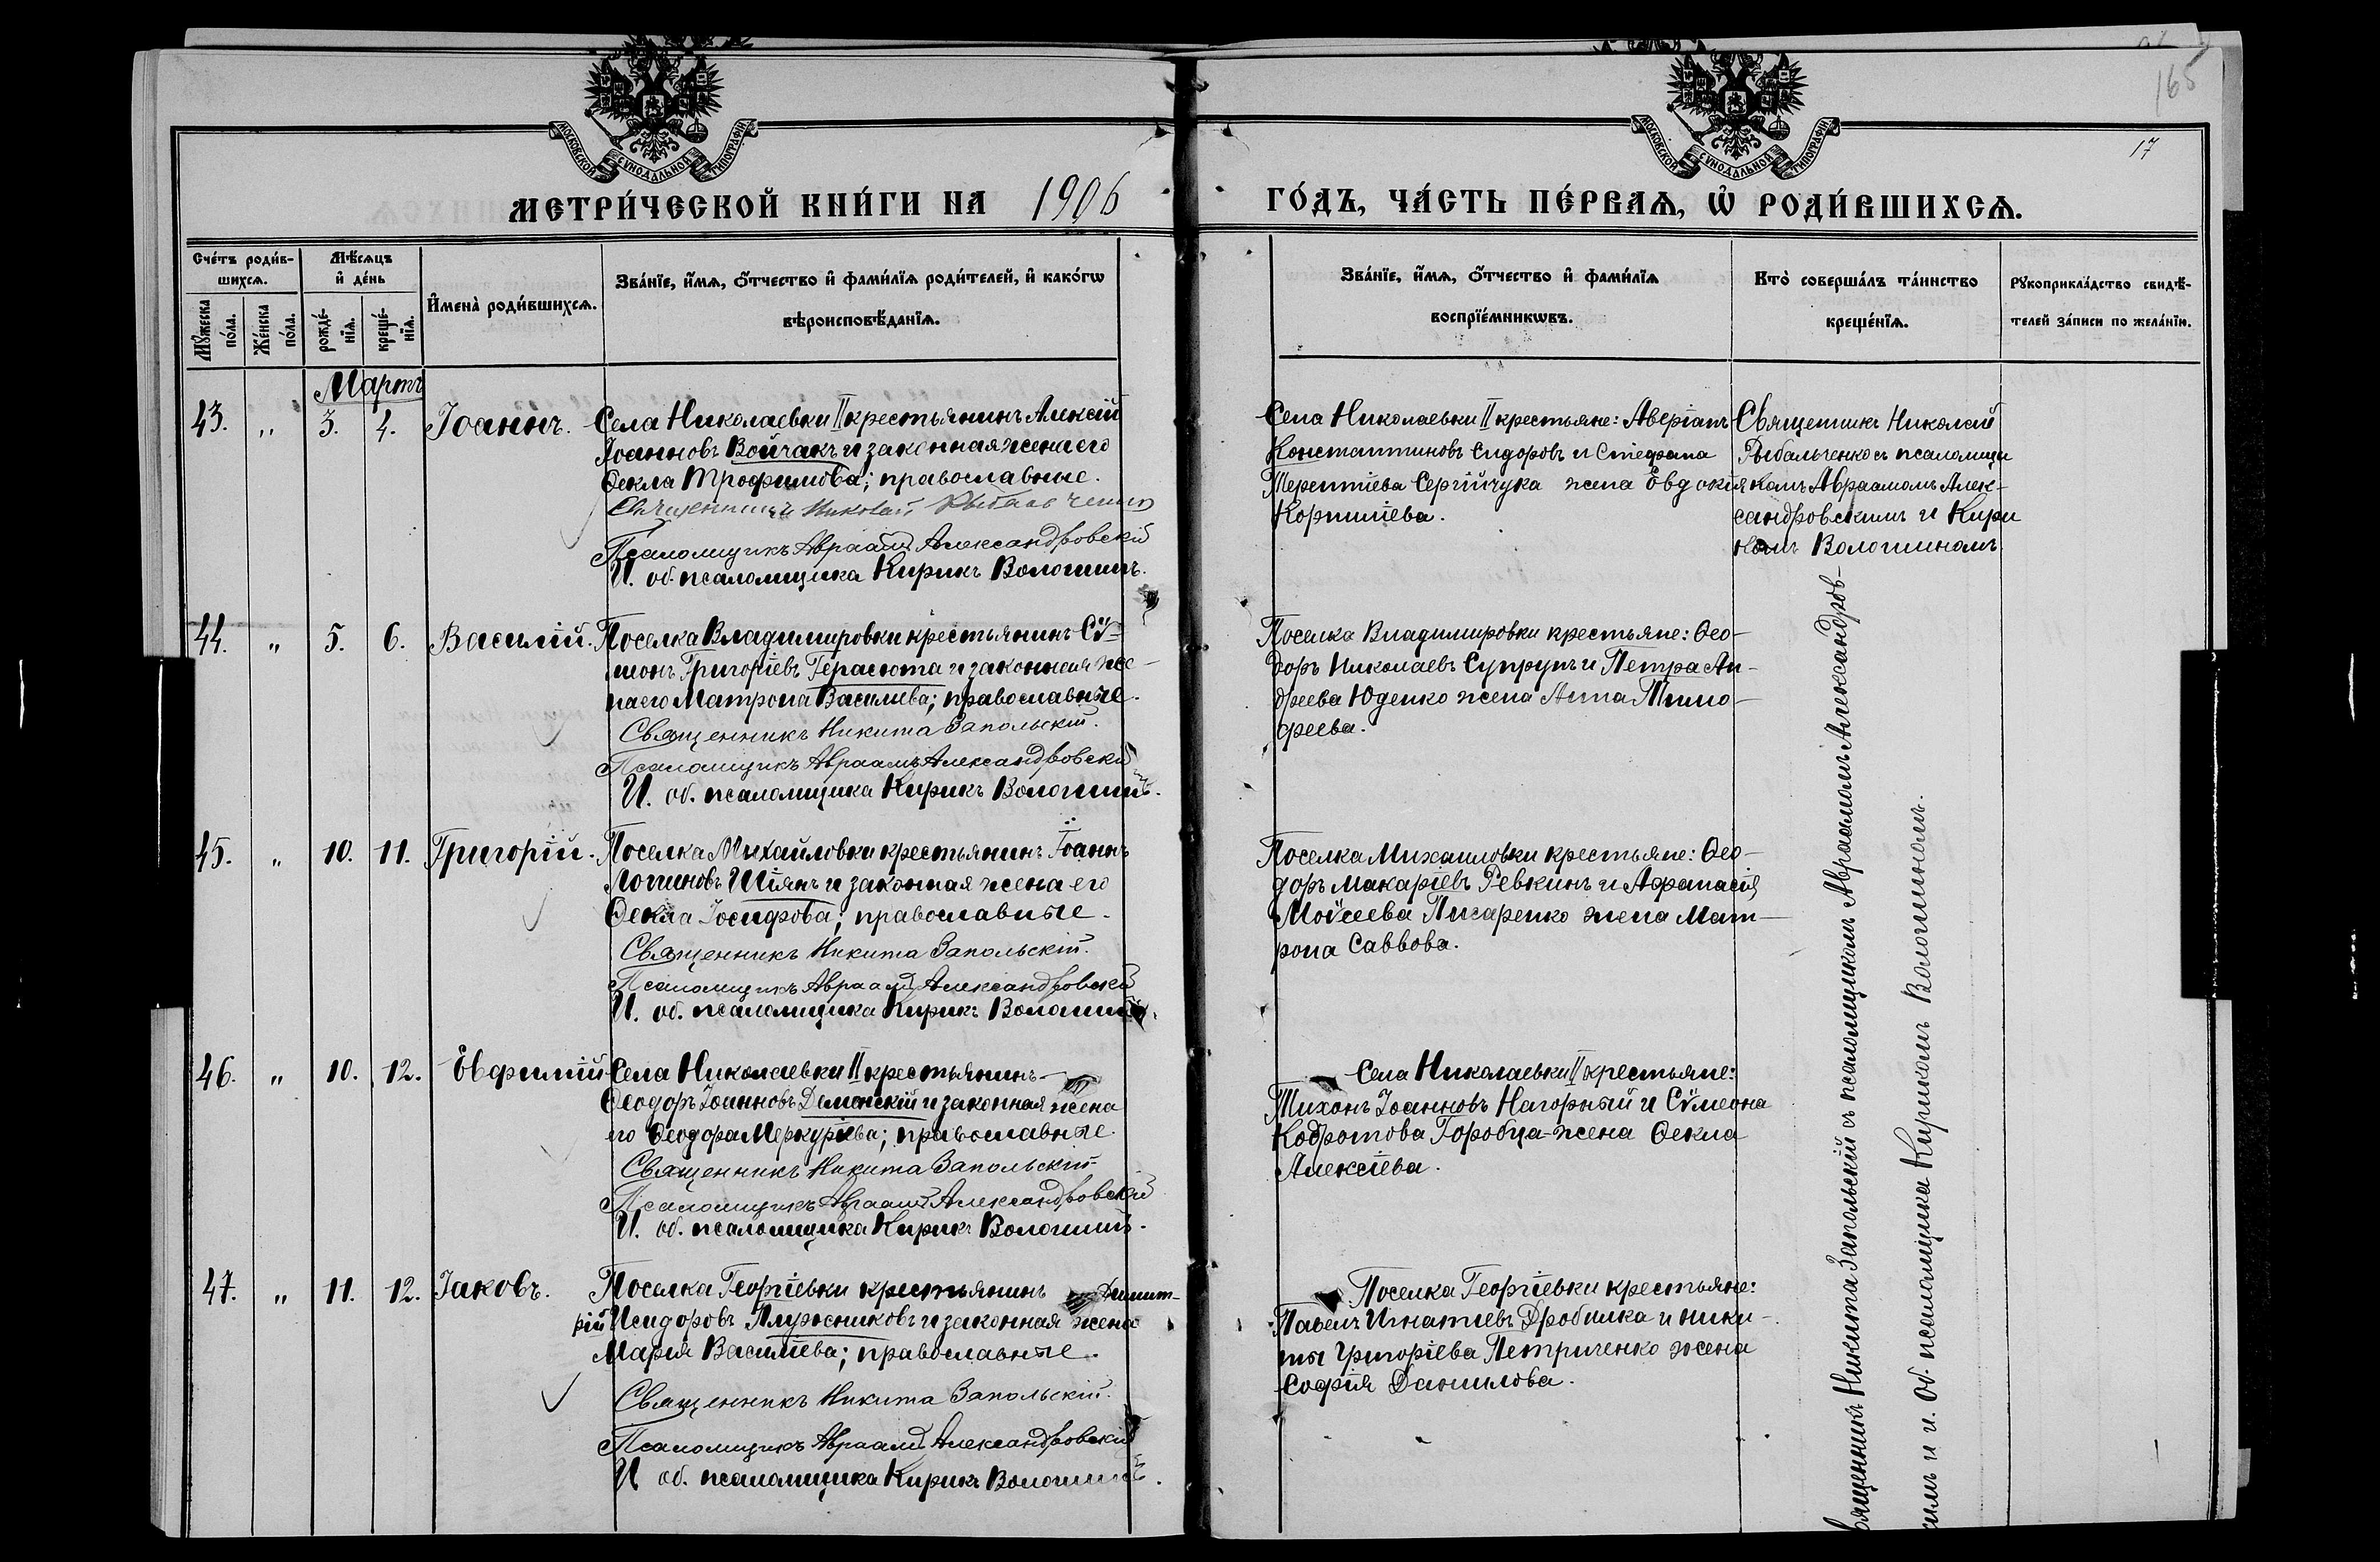 165
17
МОСКОВСКОЙ СУНОДАЛЬНОЙ ТИПОГРАФІИ
МОСКОВСКОЙ СУНОДАЛЬНОЙ ТИПОГРАФІИ
МЕТРИ́ЧЕСКОЙ КНИ́ГИ НА 1906
ГО́ДЪ, ЧА́СТЬ ПЕ́РВАѦ, Ѡ҆ РОДИ́ВШИХСѦ.
Сче́тъ роди́в-
шихсѧ.
Мѣ́сѧцъ
и҆ де́нь
Мꙋ́жеска
по́ла.
Же́нска
по́ла.
рожде́-
нїѧ.
креще́-
нїѧ.
И҆мена̀ роди́вшихсѧ.
Зва́нїе, и҆́мѧ, ѻ҆́тчество и҆ фами́лїѧ роди́телей, и҆ како́гѡ
вѣроисповѣ́данїѧ.
Зва́нїе, и҆́мѧ, ѻ҆́тчество и҆ фами́лїѧ
воспрїе́мникѡвъ.
Кто̀ соверша́лъ та́инство
креще́нїѧ.
Рꙋкоприкла́дство свидѣ́-
телей за́писи по жела́нїю.
Мартъ
43. " 3. 4. Іоаннъ.
Села Николаевки II крестьянинъ Алексій
Іоанновъ Войчакъ и законная жена его
Ѳекла Трофимова; православные.
Священникъ Николай Рыбальченко
Псаломщикъ Авраамъ Александровскій
И. об. псаломщика Кирикъ Волошинъ.
Села Николаевки II крестьяне: Аверіанъ
Константиновъ Сидоровъ и Стефана
Терентіева Сергійчука жена Евдокія
Корниліева.
Священникъ Николай
Рыбальченко съ псаломщи
комъ Авраамомъ Алек-
сандровскимъ и Кири
комъ Волошиномъ.
44. " 5. 6. Василій.
Поселка Владимировки крестьянинъ Сѵ-
меонъ Григоріевъ Герасюта и законная же-
на его Матрона Василиева; православные.
Священникъ Никита Запольскій.
Псаломщикъ Авраамъ Александровскій
И. об. псаломщика Кирикъ Волошинъ.
Поселка Владимировки крестьяне: Ѳео-
доръ Николаевъ Супрунъ и Петра Ан-
дреева Юденко жена Анна Тимо-
феева.
45. " 10. 11. Григорій.
Поселка Михайловки крестьянинъ Іоаннъ
Логиновъ Шіянъ и законная жена его
Ѳекла Іосифова; православные.
Священникъ Никита Запольскій.
Псаломщикъ Авраамъ Александровскій
И. об. псаломщика Кирикъ Волошинъ.
Поселка Михаиловки крестьяне: Ѳео-
доръ Макаріевъ Ревкинъ и Афанасія
Моѵсеева Писаренко жена Мат-
рона Саввова.
46. " 10. 12. Евфимій
Села Николаевки II крестьянинъ
Ѳеодоръ Іоанновъ Деменскій и законная жена
его Ѳеодора Меркуріева; православные.
Священникъ Никита Запольскій.
Псаломщикъ Авраамъ Александровскій
И. об. псаломщика Кирикъ Волошинъ.
Села Николаевки II крестьяне:
Тихонъ Іоанновъ Нагорный и Сѵмеона
Кодротова Горобца жена Ѳекла
Алексіева.
47. " 11. 12. Іаковъ.
Поселка Георгіевки крестьянинъ Димит-
рій Исидоровъ Плужниковъ и законная жена
Марія Василіева; православные.
Священникъ Никита Запольскій.
Псаломщикъ Авраамъ Александровскій
И об. псаломщика Кирикъ Волошинъ.
Поселка Георгіевки крестьяне:
Павелъ Игнатіевъ Дробилка и Ники-
ты Григоріева Петриченко жена
Софія Данилова.
Священникъ Никита Запольскій съ псаломщикомъ Авраамомъ Александров-
скимъ и и. об. псаломщика Кирикомъ Волошиномъ.